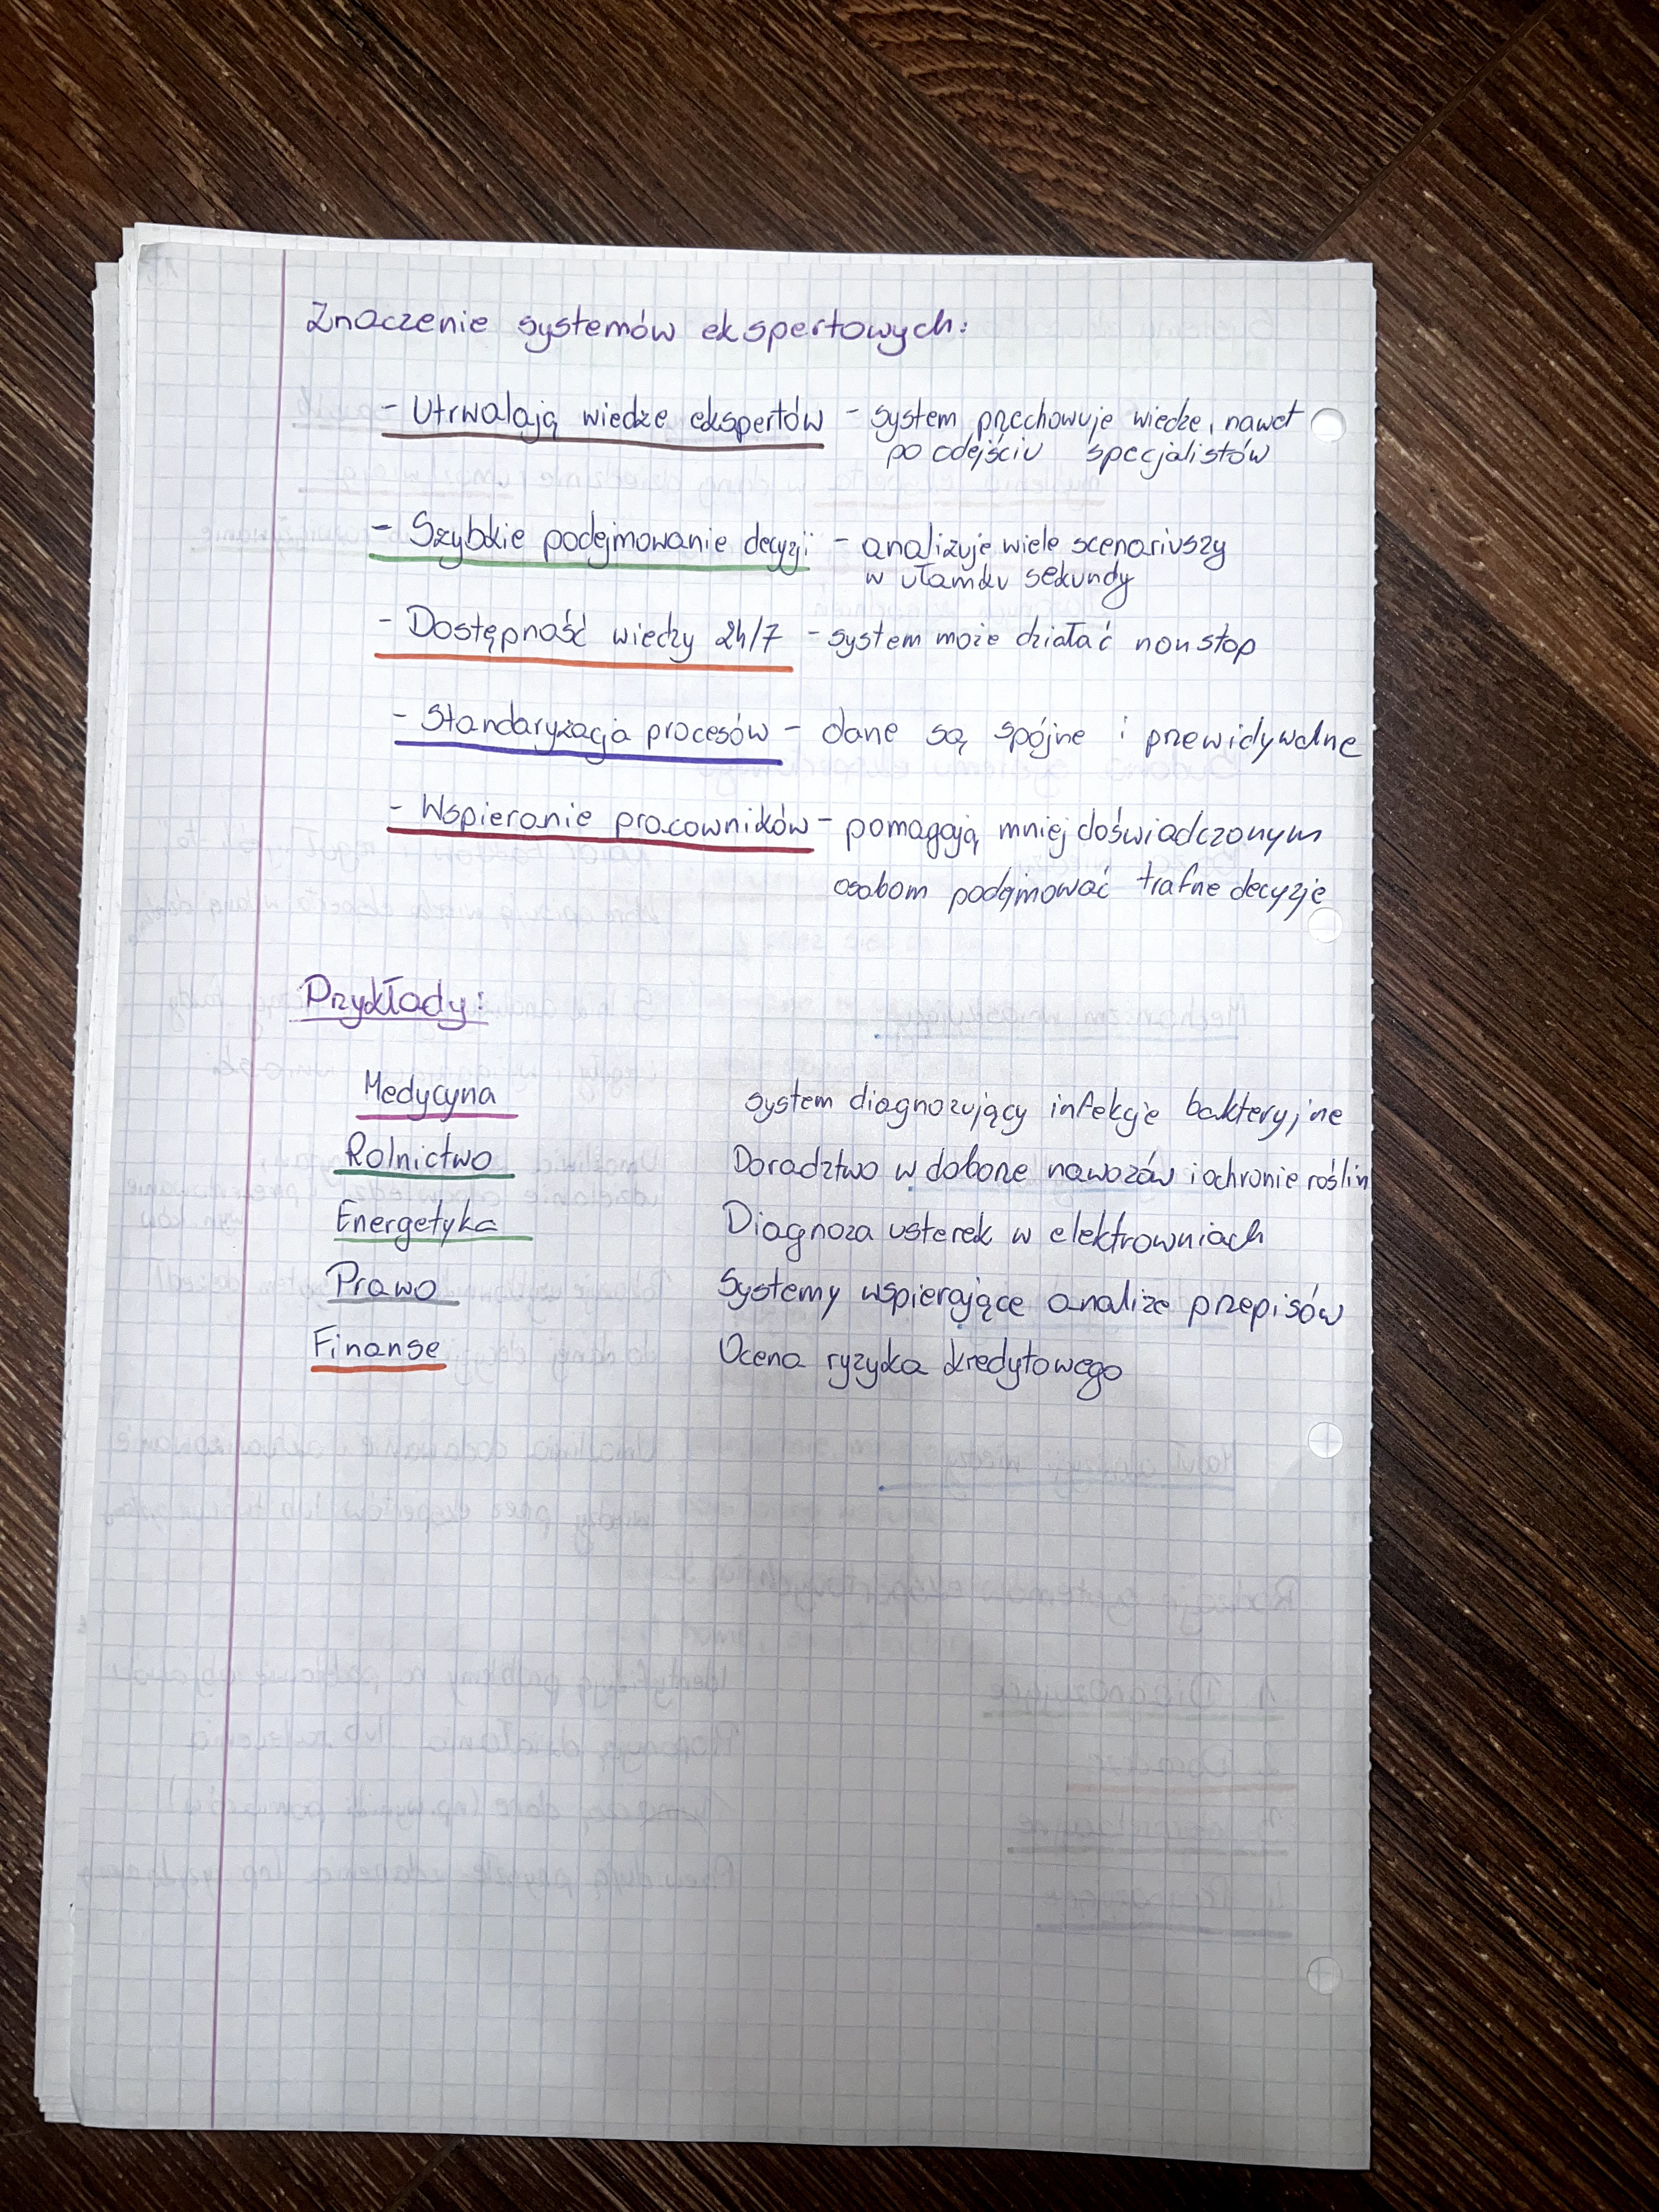 Znaczenie systemów ekspertowych:
- Utrwalają wiedze ekspertów - system przechowuje wiedze, nawet
po odejściu specjalistów
- Szybkie podejmowanie decyzji - analizuje wiele scenariuszy
w ułamku sekundy
- Dostępność wiedzy 24/7 - system może działać non stop
- Standaryzacja procesów - dane są spójne i przewidywalne
- Wspieranie pracowników - pomagają mniej doświadczonym
osobom podejmować trafne decyzje
Przykłady:
Medycyna system diagnozujący infekcje bakteryjne
Rolnictwo Doradztwo w doborze nawozów i ochronie roślin
Energetyka Diagnoza usterek w elektrowniach
Prawo Systemy wspierające analize przepisów
Finanse Ocena ryzyka kredytowego